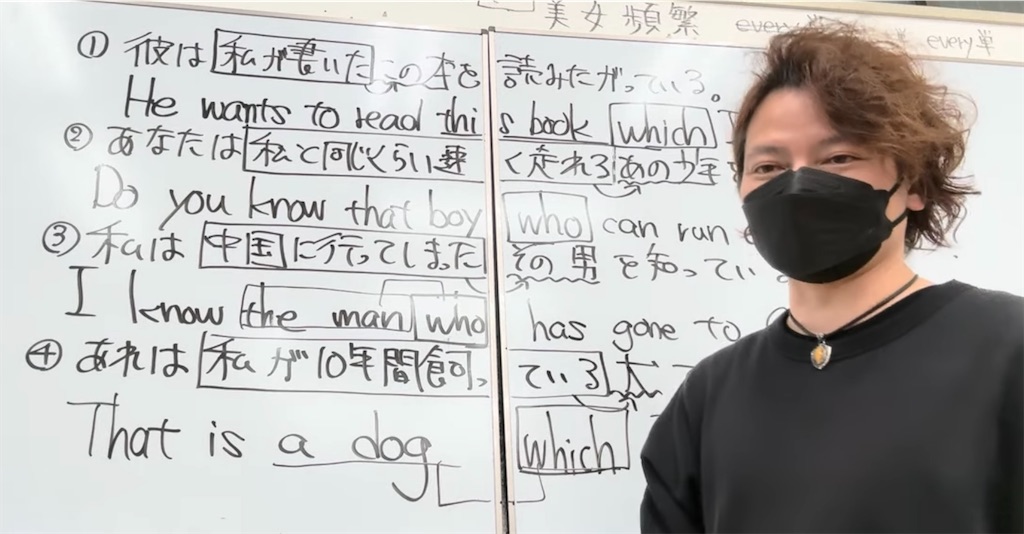 美女頻繁 every
every単
① 彼は私が書いたこの本を読みたがっている。
He wants to read this book which
② あなたは私と同じくらい速く走れるあの少年を
Do you know that boy who can run
③ 私は中国に行ってしまったその男を知ってい
I know the man who has gone to
④ あれは私が10年間飼っている犬
That is a dog which